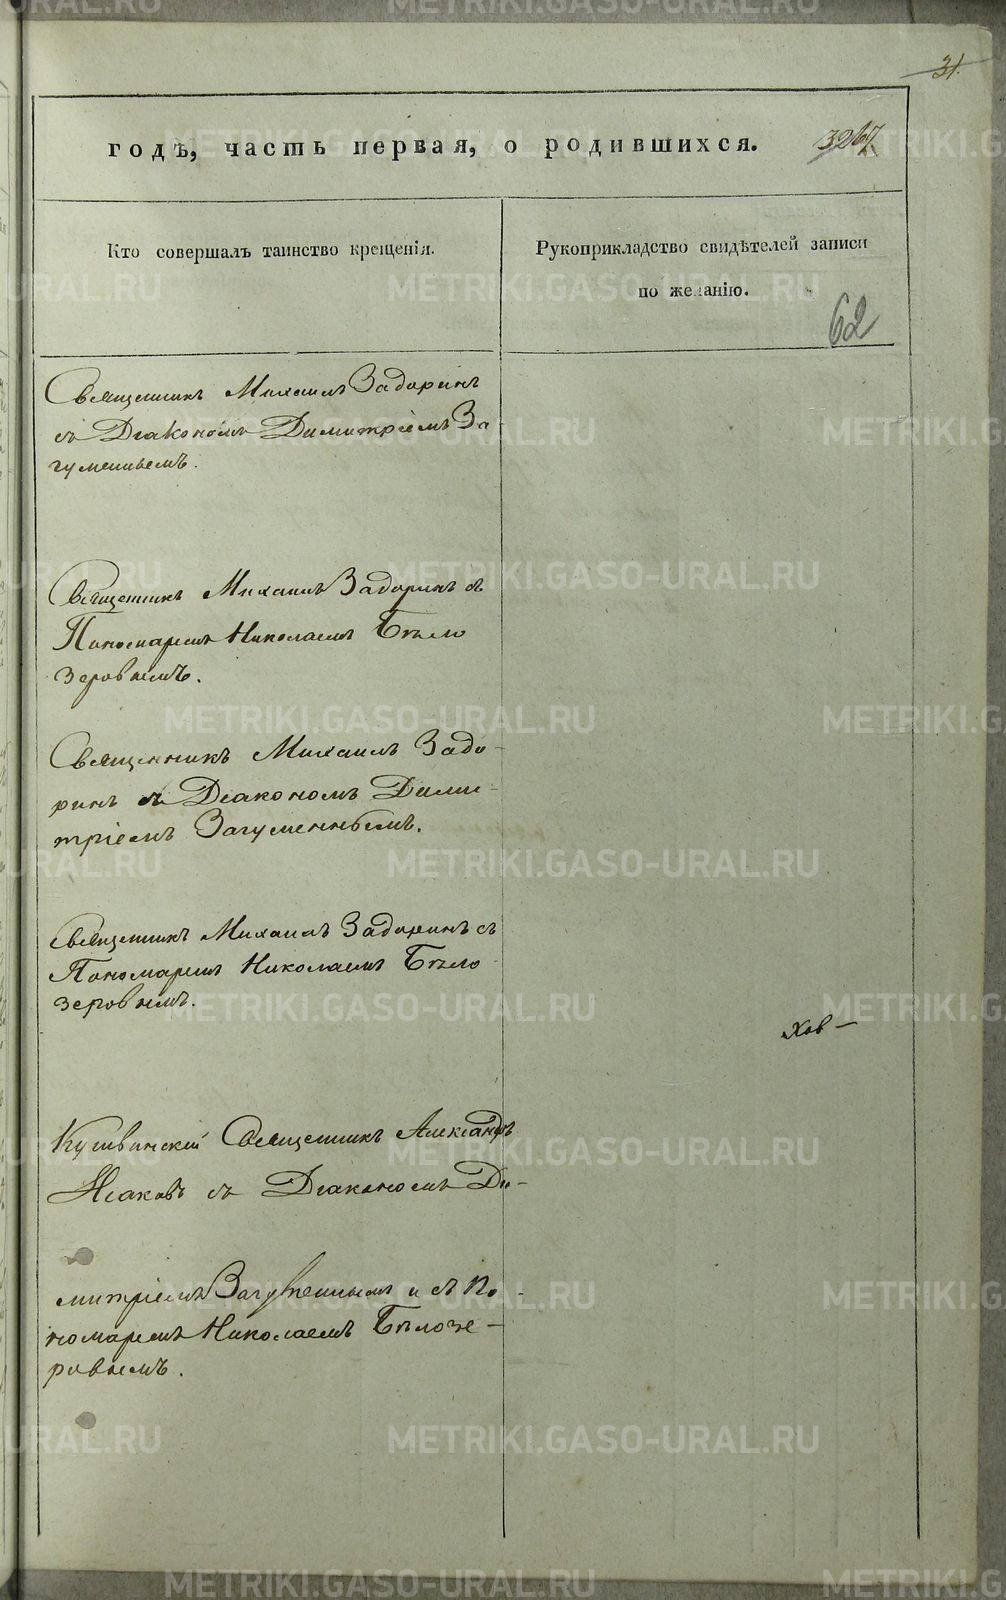 31.
годѣ, часть первая, о родившихся.
3267
Кто совершалъ таинство крещенія.
Рукоприкладство свидѣтелей записи
по желанію.
62
Священникъ Михаилъ Задоринъ
съ Діакономъ Димитріемъ За-
гуменнымъ.
Священникъ Михаилъ Задоринъ съ
Пономаремъ Николаемъ Бѣло
зеровымъ.
Священникъ Михаилъ Задо-
ринъ съ Діакономъ Дими-
тріемъ Загуменнымъ.
Священникъ Михаилъ Задоринъ съ
Пономаремъ Николаемъ Бѣло
зеровымъ.
хов —
Кушвинскій Священникъ Александръ
Исаковъ съ Діакономъ Ди-
митріемъ Загуменнымъ и съ По-
номаремъ Николаемъ Бѣлозе-
ровымъ.
METRIKI.GASO-URAL.RU